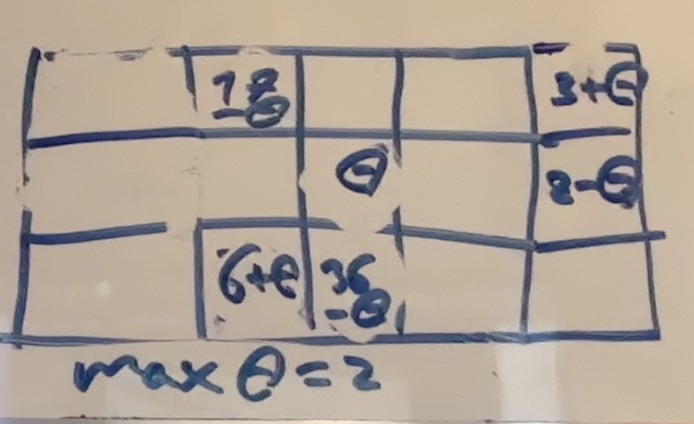 18 3+θ
-θ
θ 2-θ
6+θ 36
-θ
max θ=2